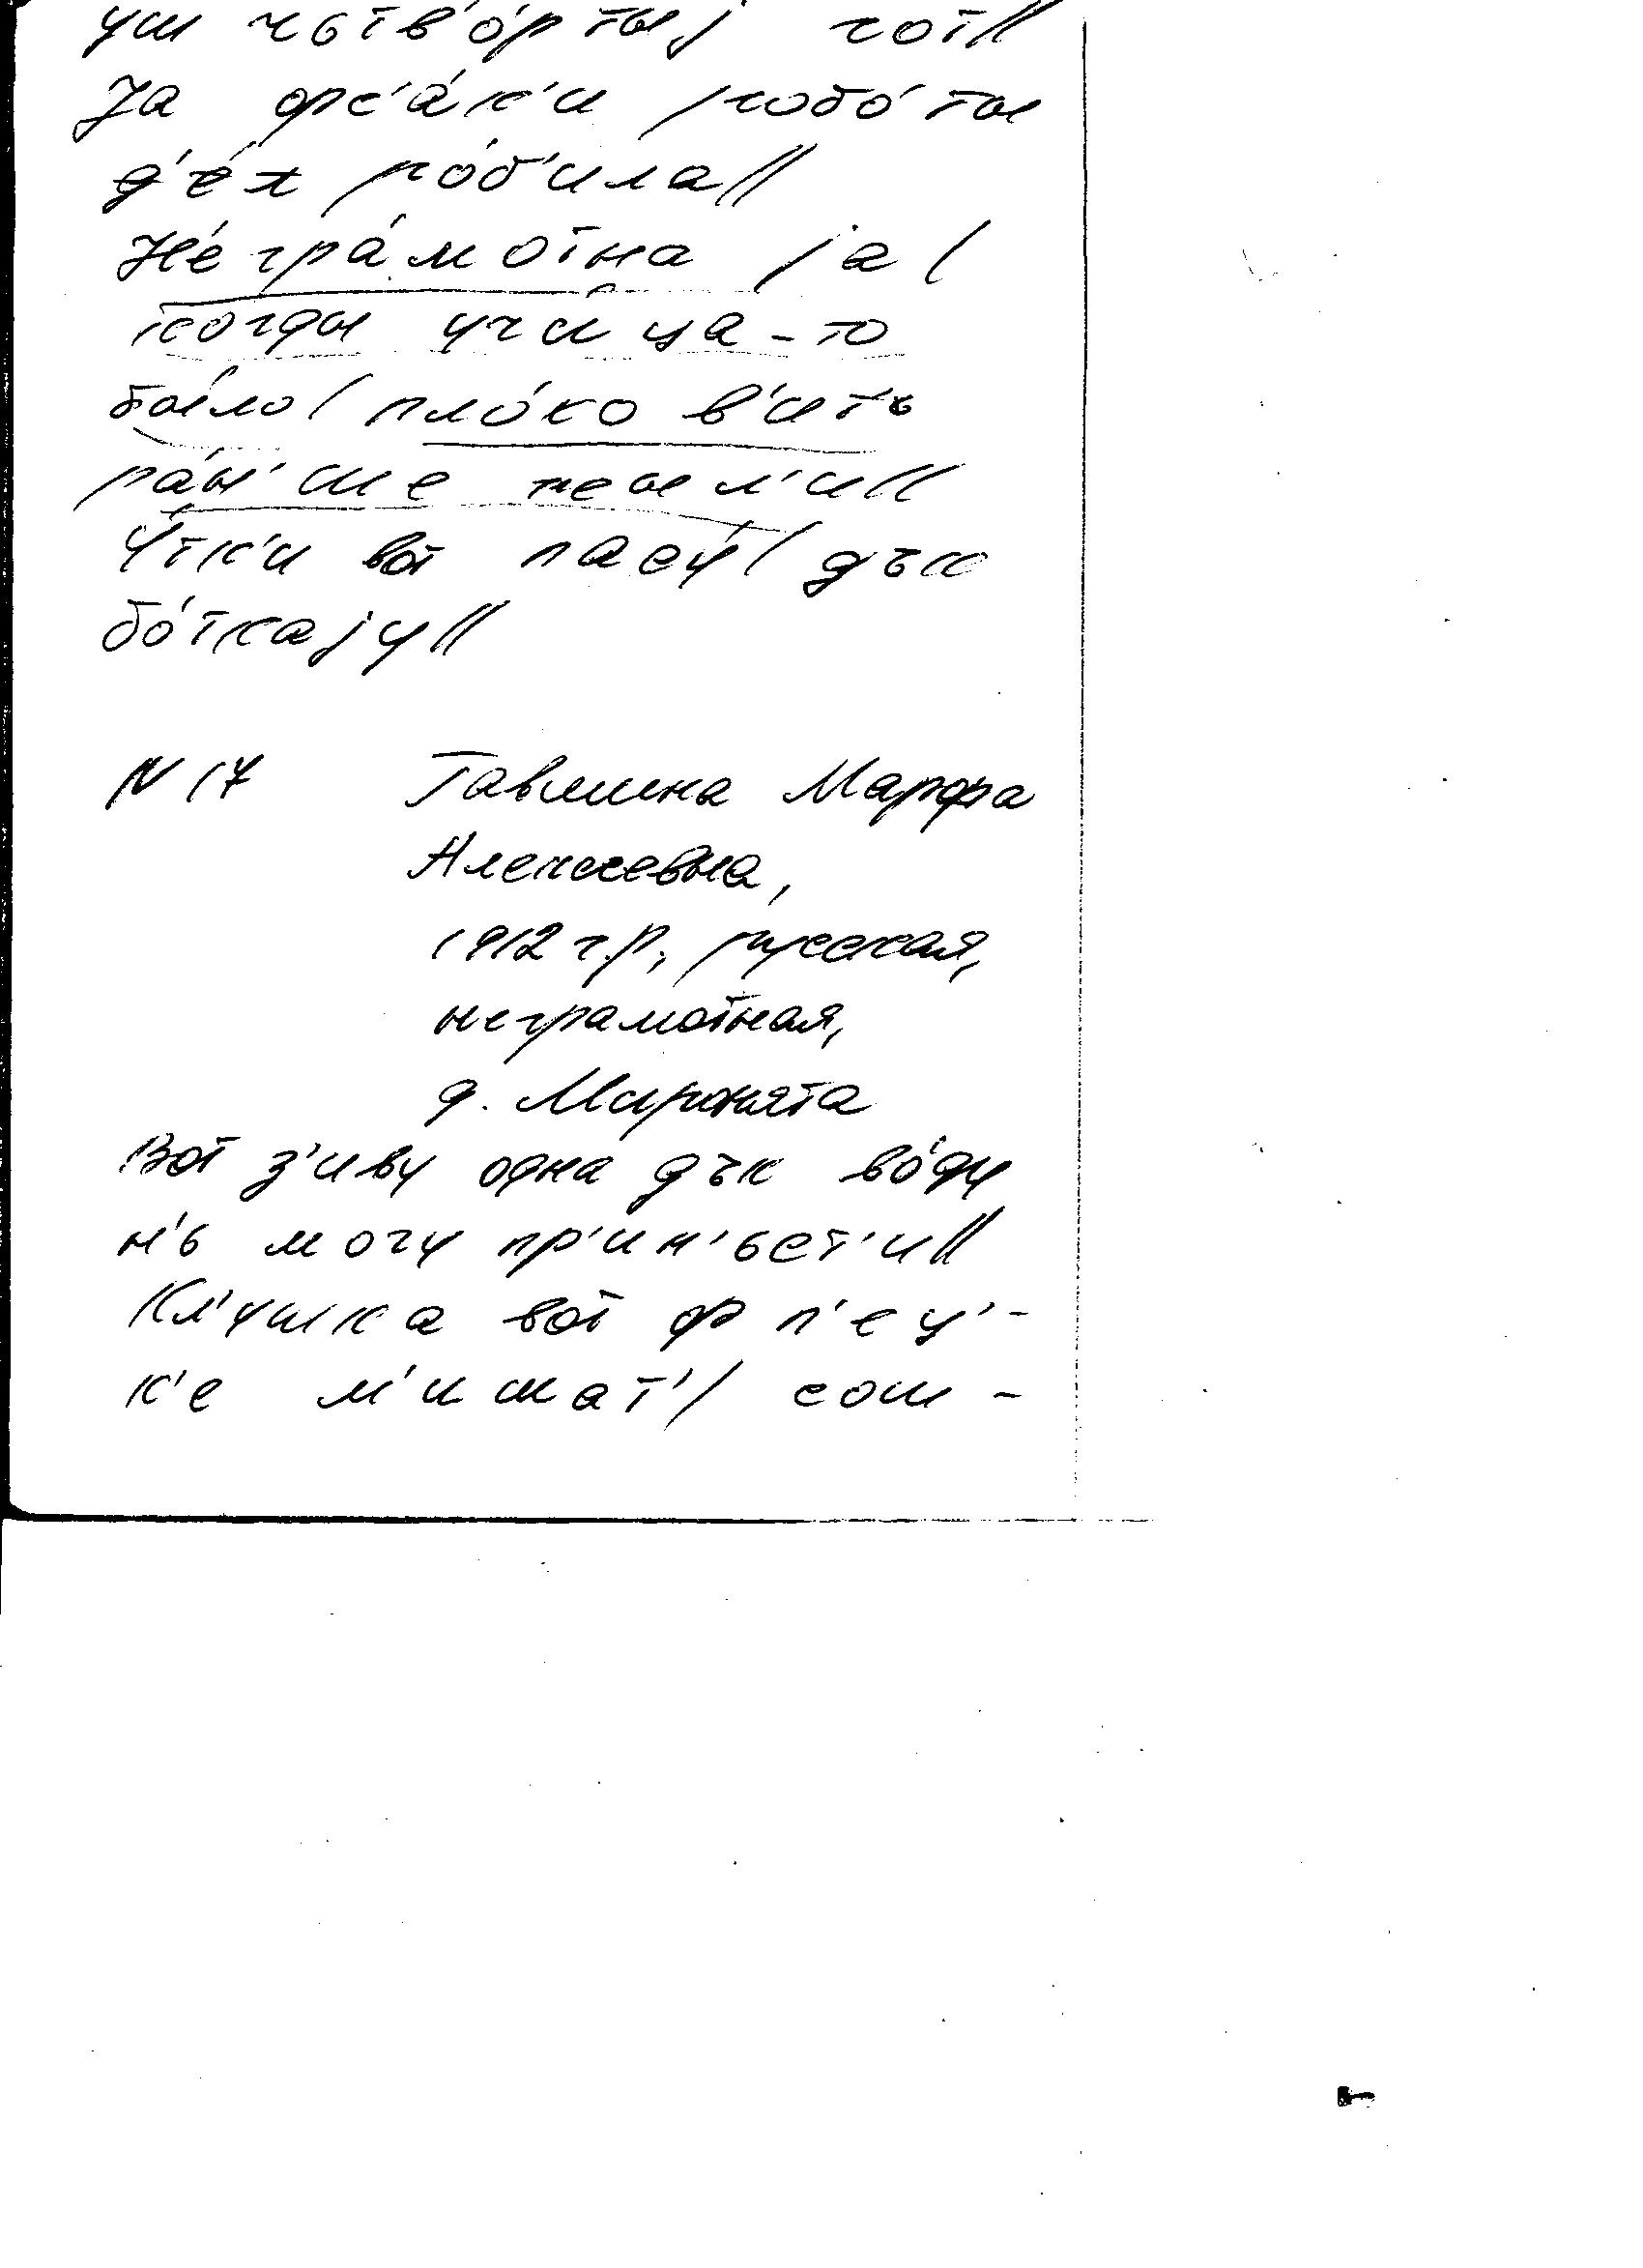 уш чьтв'о́ртыј гот//
Ја фс'а́к'и робо́ты
д'е́л ро́б'ила//
Н'егра́мотна ја/
когды учи́ца-то
бы́ло/ пло́ко в'ить
ра́н'ше жы́л'и//
У́тк'и вот пасу́/ дък
бо́ткају//
N 17 Гавшина Марфа
Алексеевна,
1912 г.р., русская,
неграмотная,
д. Миронята
Вот з'иву одна дък во́ду
н'ь могу пр'ин'ьст'и//
Кл'ушка вот ф п'ец'-
к'е м'ишат'/ сош-